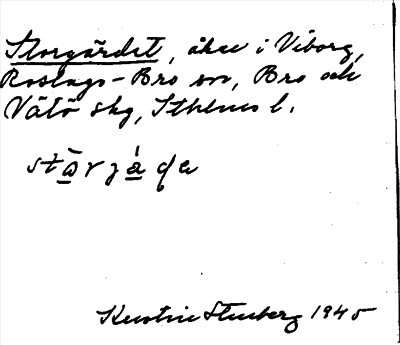 Storgärdet, åker i Viborg,
Roslags-Bro sn, Bro och
Vätö skg, Sthlms l.
stārgá̱ꞯa
Kerstin Stenberg 1945